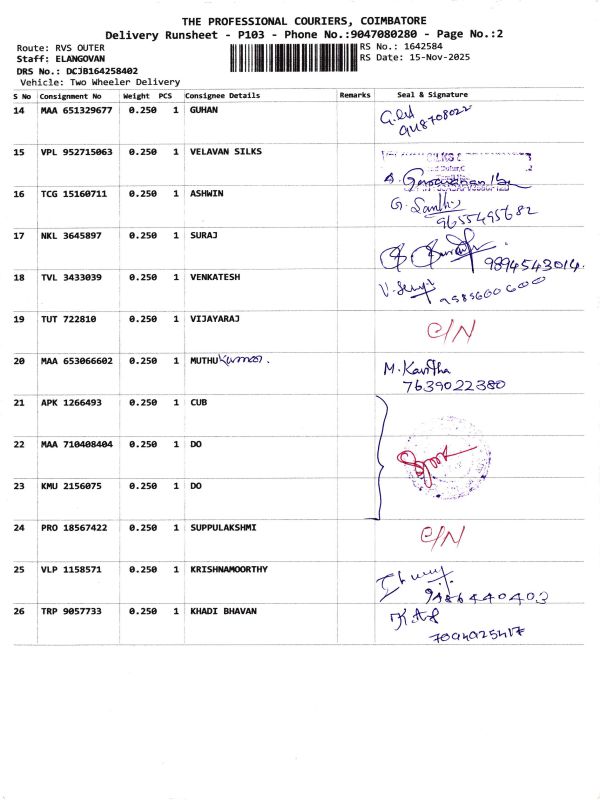 THE PROFESSIONAL COURIERS, COIMBATORE
Delivery Runsheet - P103 - Phone No.:9047080280 - Page No.:2
Route: RVS OUTER
RS No.: 1642584
Staff: ELANGOVAN
RS Date: 15-Nov-2025
DRS No.: DCJB164258402
Vehicle: Two Wheeler Delivery
S No Consignment No Weight PCS Consignee Details Remarks Seal & Signature
14 MAA 651329677 0.250 1 GUHAN
15 VPL 952715063 0.250 1 VELAVAN SILKS
16 TCG 15160711 0.250 1 ASHWIN
9655495682
17 NKL 3645897 0.250 1 SURAJ
9894543014.
18 TVL 3433039 0.250 1 VENKATESH
19 TUT 722810 0.250 1 VIJAYARAJ C/N
20 MAA 653066602 0.250 1 MUTHU Kumar. M. Kavitha
7639022380
21 APK 1266493 0.250 1 CUB
22 MAA 710408404 0.250 1 DO
23 KMU 2156075 0.250 1 DO
24 PRO 18567422 0.250 1 SUPPULAKSHMI C/N
25 VLP 1158571 0.250 1 KRISHNAMOORTHY
9486440403
26 TRP 9057733 0.250 1 KHADI BHAVAN